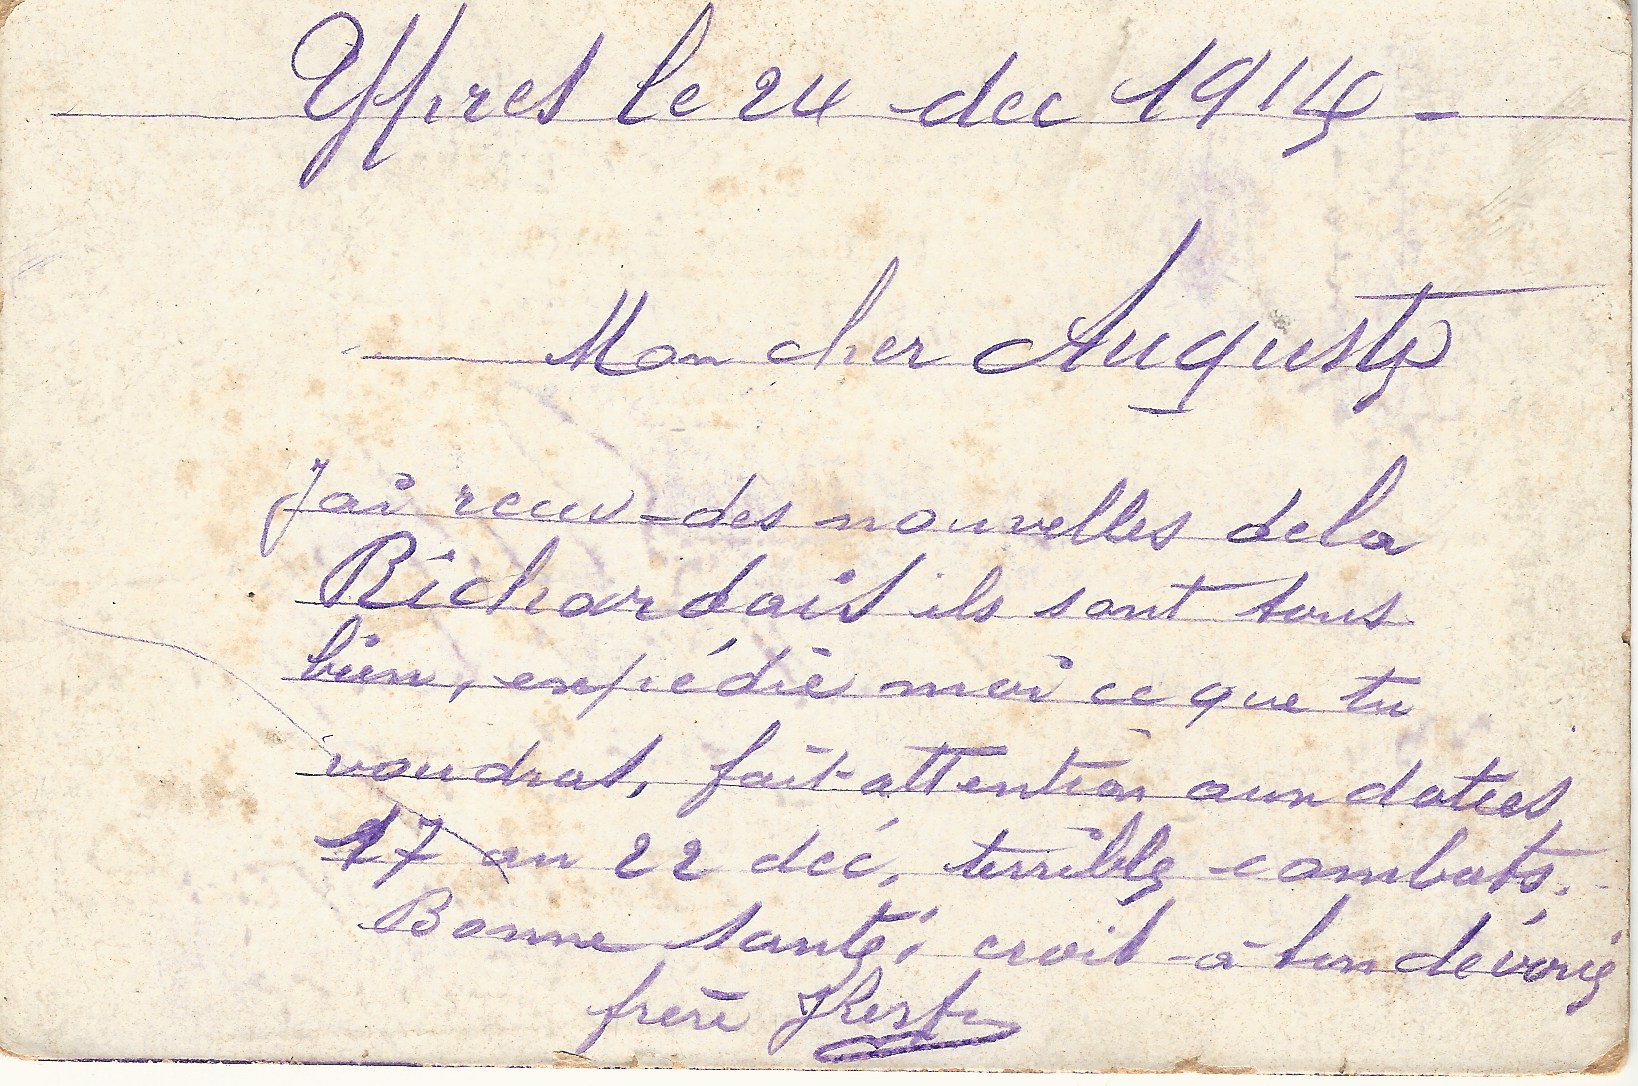 Yppres le 24 dec 1914 -
Mon cher Auguste
J'ai recu des nouvelles de la
Richardais ils sont tous
bien, expédié moi ce que tu
voudras, fait attention aux datees,
17 au 22 déc, terrible combats.
Bonne santé, crois à ton dévoué
frère